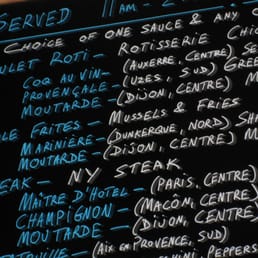 SERVED 11AM - 2
CHOICE OF ONE SAUCE & ANY
POULET ROTI - ROTISSERIE CHIC
COQ AU VIN - (AUXERRE, CENTRE) SE
PROVENÇALE - (UZES, SUD) GREE
MOUTARDE - (DIJON, CENTRE) M
LE FRITES - MUSSELS & FRIES
MARINIÈRE - (DUNKERQUE, NORD) SHA
MOUTARDE - (DIJON, CENTRE) M
EAK - NY STEAK
MAÎTRE D'HOTEL - (PARIS, CENTRE)
CHAMPIGNON - (MACÔN, CENTRE)
MOUTARDE - (DIJON, CENTRE)
ATOUILLE - (AIX EN PROVENCE, SUD)
HINI, PEPPERS